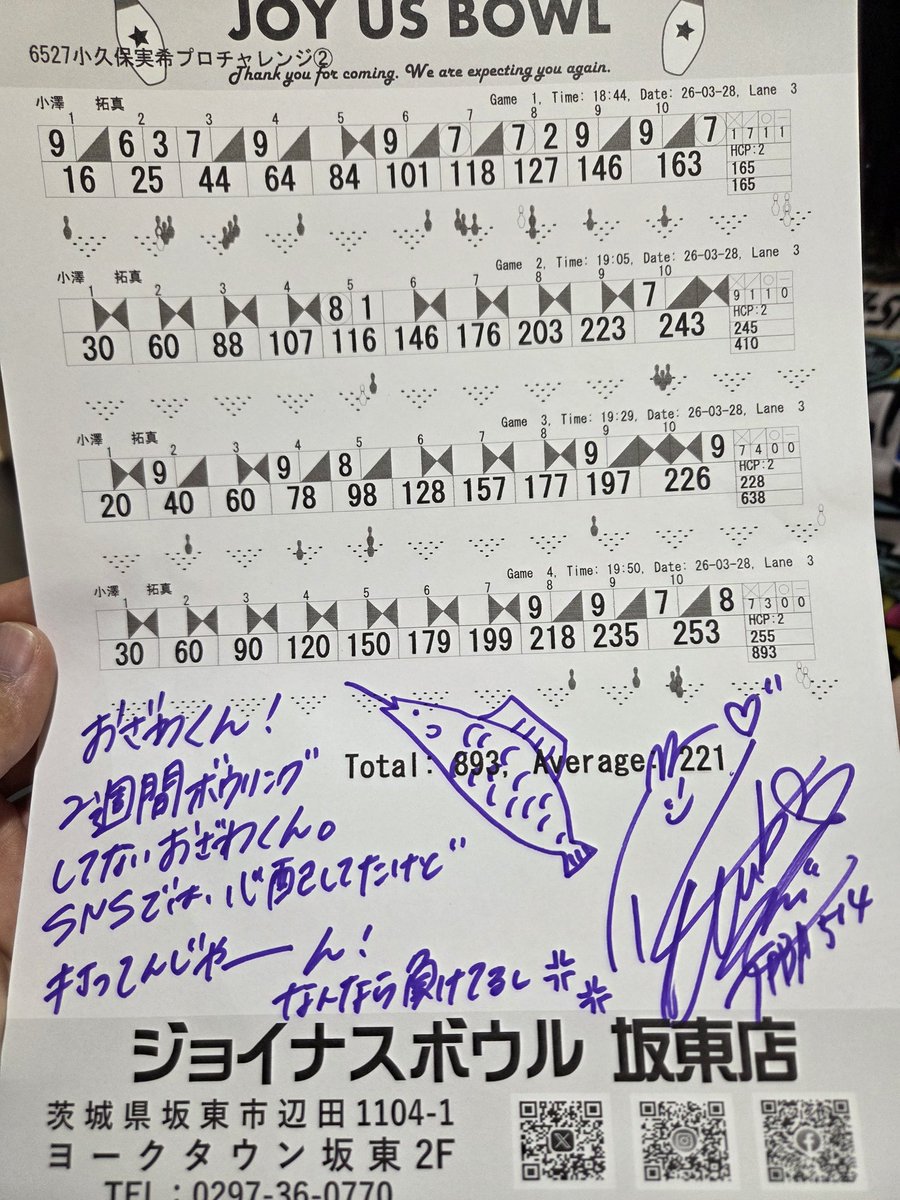 JOY US BOWL
6527小久保実希プロチャレンジ②
Thank you for coming. We are expecting you again.
小澤 拓真
Game 1, Time: 18:44, Date: 26-03-28, Lane 3
1 2 3 4 5 6 7 8 9 10
9 6 3 7 9 9 7 7 2 9 9 7
1 7 1 1
HCP:2
16 25 44 64 84 101 118 127 146 163
165
165
小澤 拓真
Game 2, Time: 19:05, Date: 26-03-28, Lane 3
1 2 3 4 5 6 7 8 9 10
8 1 7
9 1 1 0
HCP:2
30 60 88 107 116 146 176 203 223 243
245
410
小澤 拓真
Game 3, Time: 19:29, Date: 26-03-28, Lane 3
1 2 3 4 5 6 7 8 9 10
9 9 8 9 9
7 4 0 0
HCP:2
20 40 60 78 98 128 157 177 197 226
228
638
小澤 拓真
Game 4, Time: 19:50, Date: 26-03-28, Lane 3
1 2 3 4 5 6 7 8 9 10
9 9 7 8
7 3 0 0
HCP:2
30 60 90 120 150 179 199 218 235 253
255
893
Total: 893, Average: 221
おざわくん!
2週間ボウリング
してないおざわくん。
SNSでは、心配してたけど
打ってんじゃーん!
なんなら負けてるし
JPBA 514
ジョイナスボウル 坂東店
茨城県坂東市辺田1104-1
ヨークタウン坂東2F
TEL:0297-36-0770